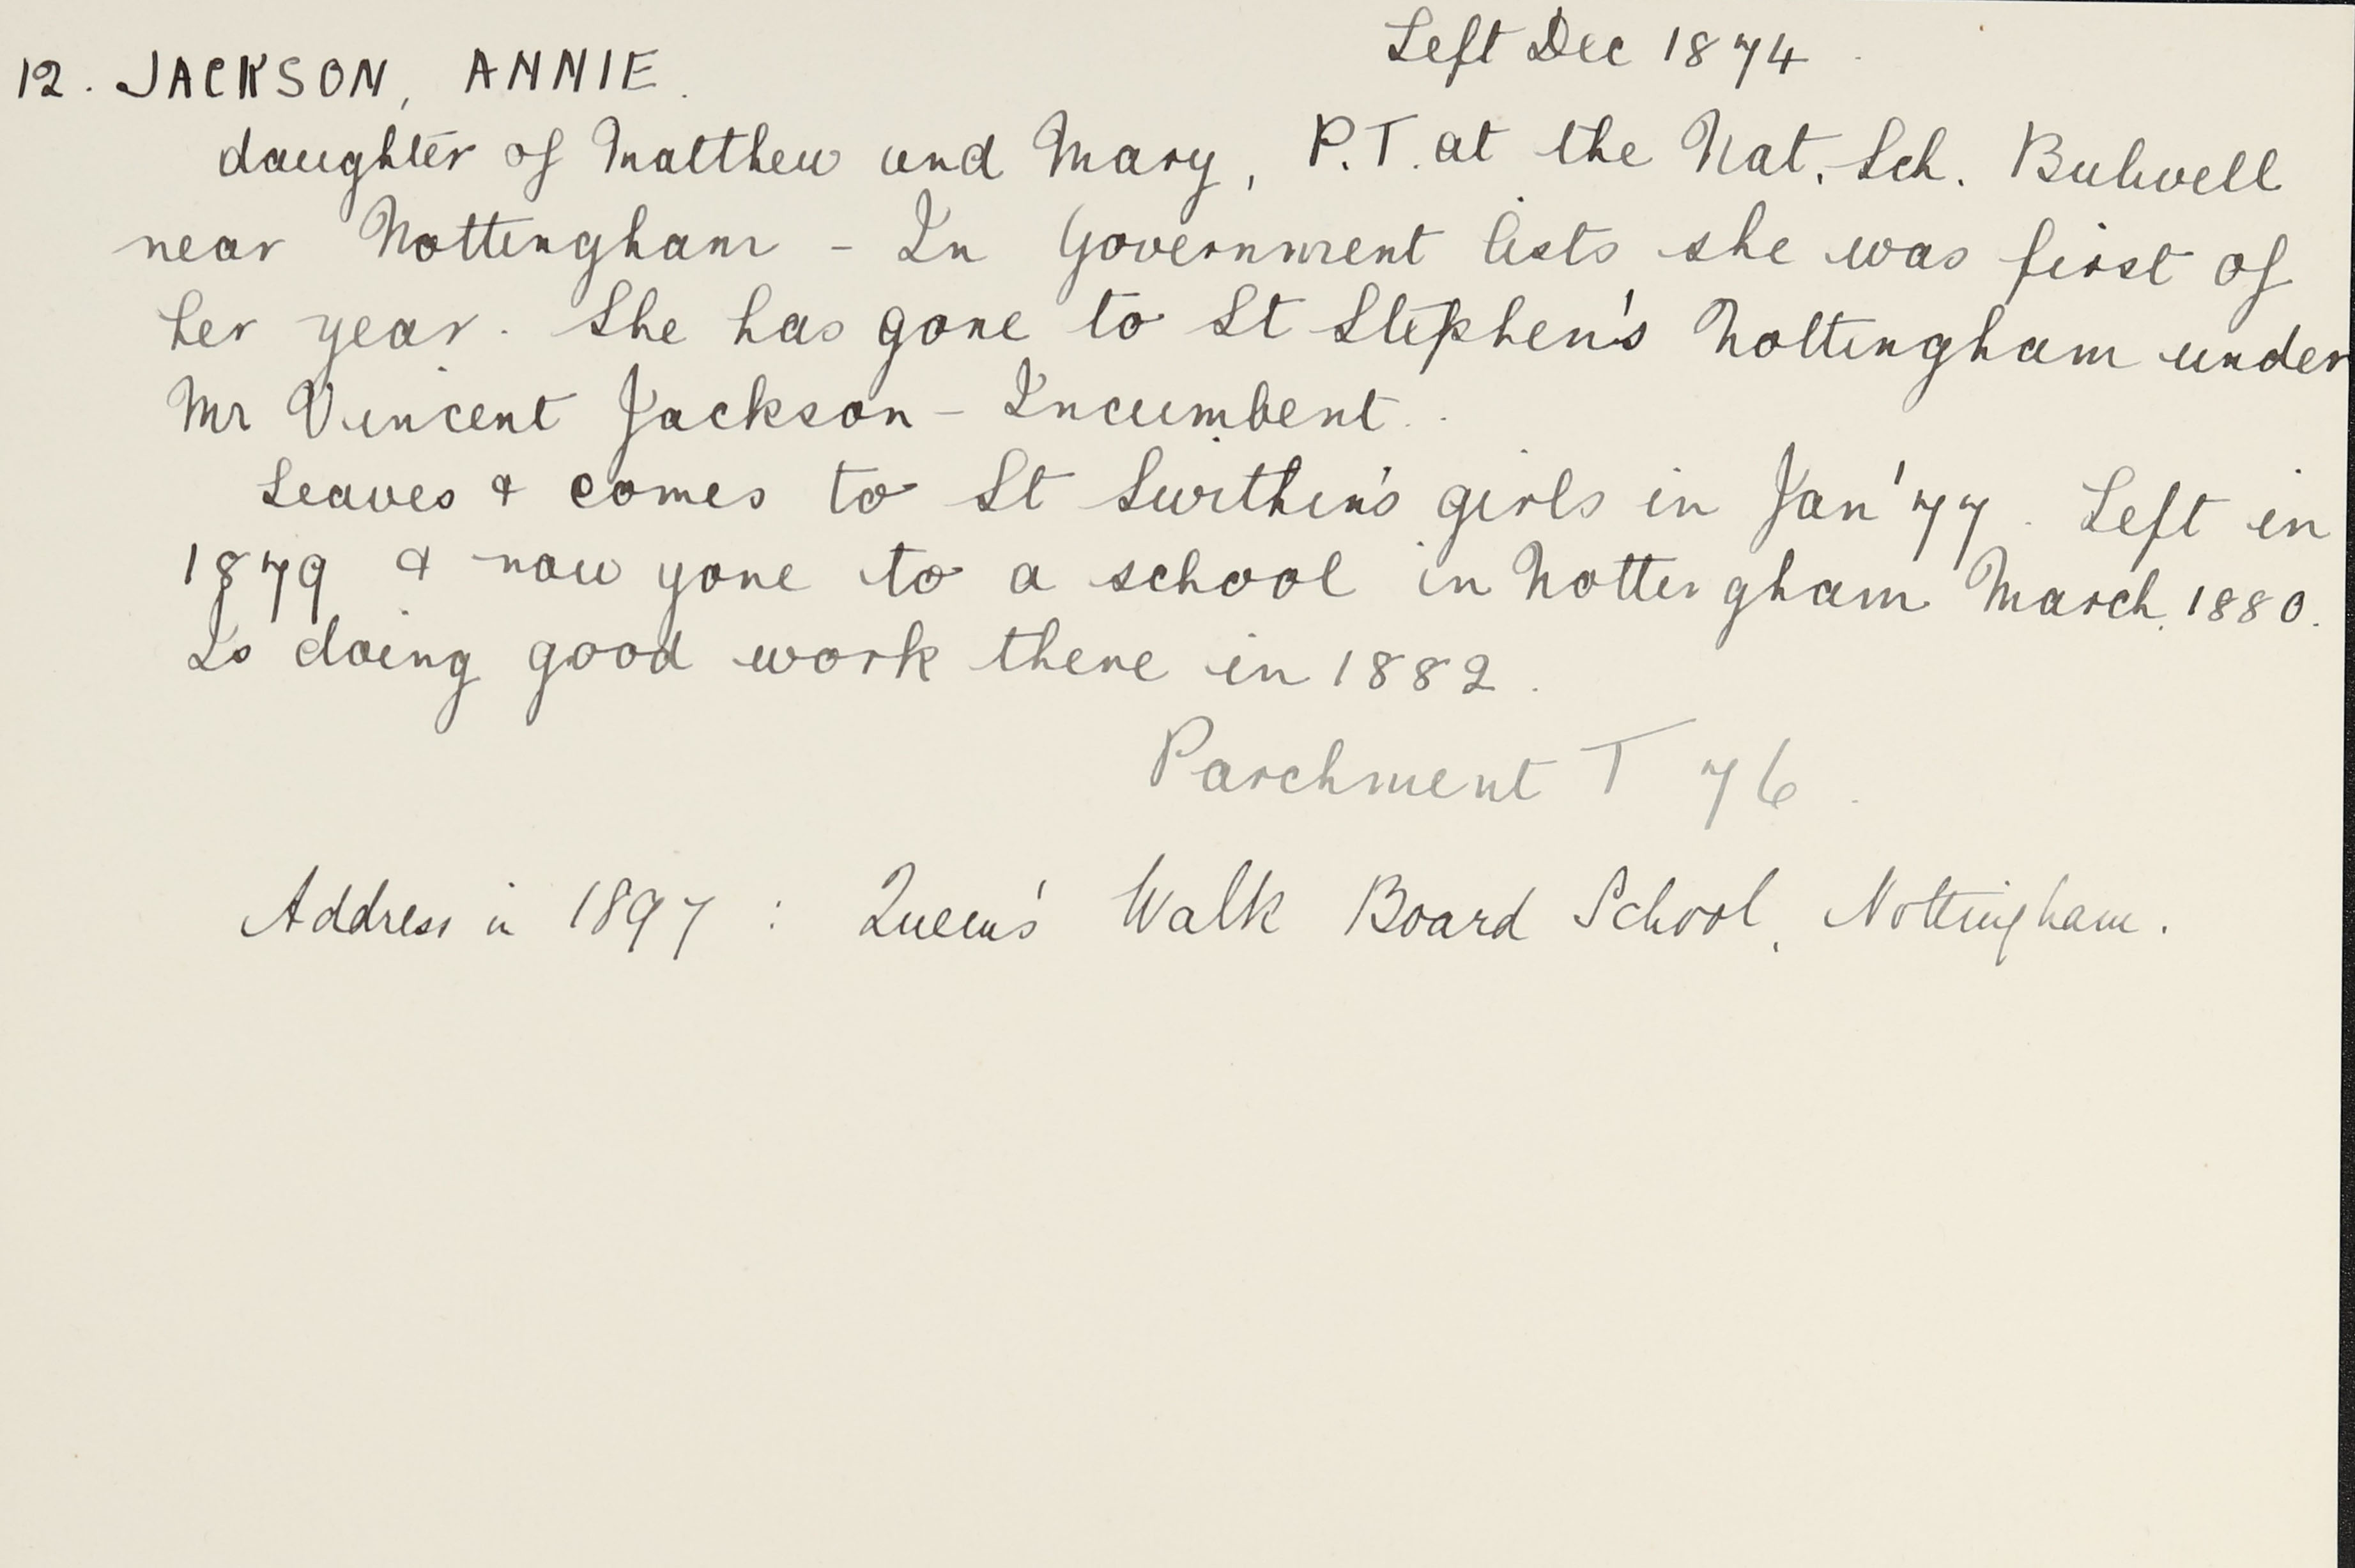 Left Dec 1874.
12. JACKSON, ANNIE.
daughter of Matthew and Mary, P.T. at the Nat. Sch. Bulwell
near Nottingham - In Government lists she was first of
her year. She has gone to St Stephen's Nottingham under
Mr Vincent Jackson - Incumbent.
Leaves & comes to St Swithin's girls in Jan '77. Left in
1879 & now gone to a school in Nottingham March 1880.
Is doing good work there in 1882.
Parchment T 76.
Address in 1897 : Queen's Walk Board School, Nottingham.